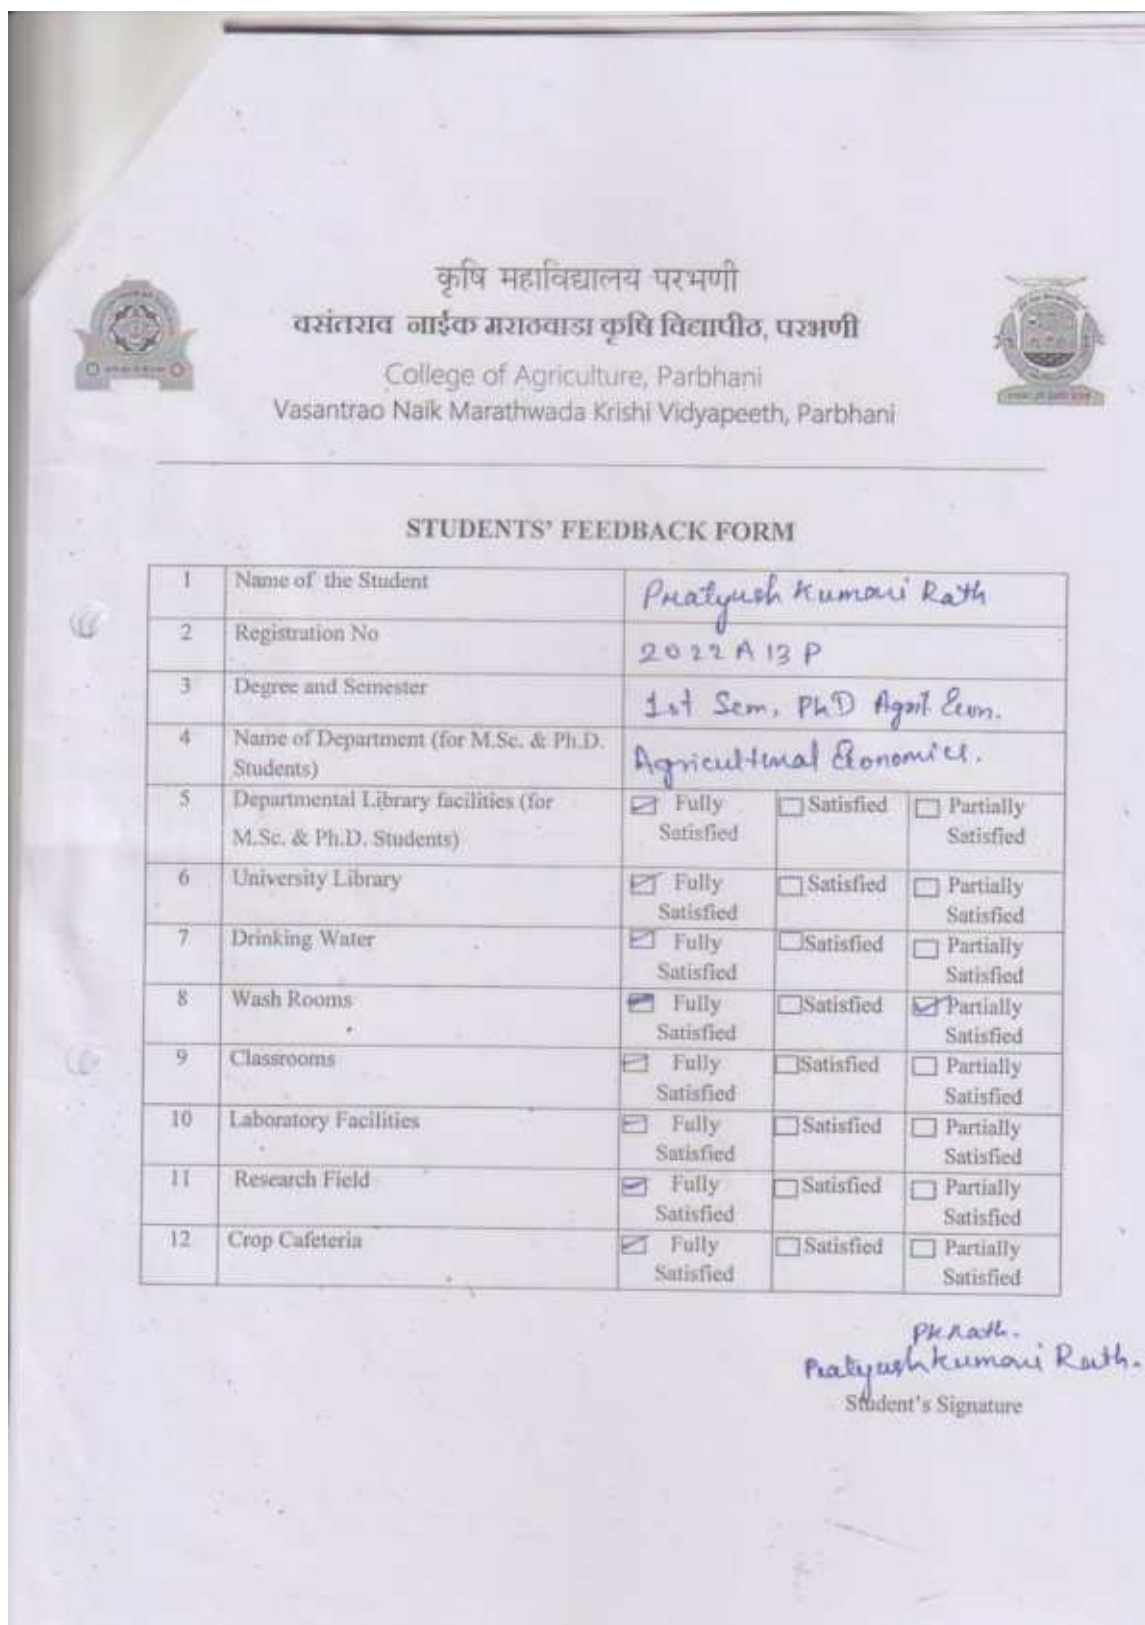 कृषि महाविद्यालय परभणी
वसंतराव नाईक मराठवाडा कृषि विद्यापीठ, परभणी
College of Agriculture, Parbhani
Vasantrao Naik Marathwada Krishi Vidyapeeth, Parbhani
STUDENTS' FEEDBACK FORM
1 Name of the Student Pratyush Kumari Rath
2 Registration No 2022 A 13 P
3 Degree and Semester 1st Sem, PhD Agril Econ.
4 Name of Department (for M.Sc. & Ph.D. Students) Agricultural Economics.
5 Departmental Library facilities (for M.Sc. & Ph.D. Students) Fully Satisfied Satisfied Partially Satisfied
6 University Library Fully Satisfied Satisfied Partially Satisfied
7 Drinking Water Fully Satisfied Satisfied Partially Satisfied
8 Wash Rooms Fully Satisfied Satisfied Partially Satisfied
9 Classrooms Fully Satisfied Satisfied Partially Satisfied
10 Laboratory Facilities Fully Satisfied Satisfied Partially Satisfied
11 Research Field Fully Satisfied Satisfied Partially Satisfied
12 Crop Cafeteria Fully Satisfied Satisfied Partially Satisfied
PK Rath.
Pratyush Kumari Rath.
Student's Signature